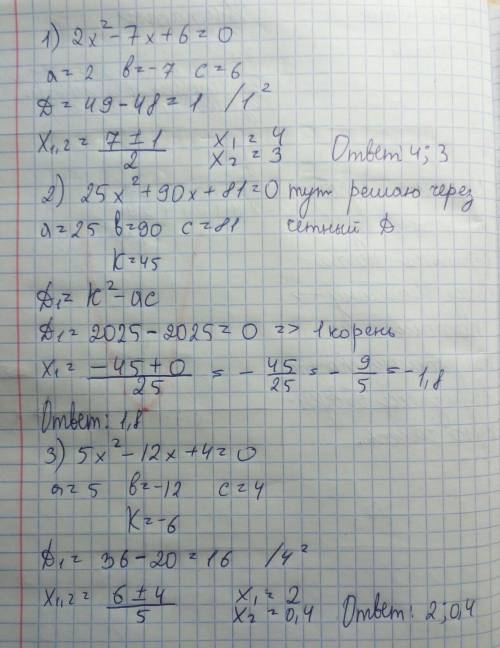 1) 2x² - 7x + 6 = 0
a = 2 в = -7 c = 6
Д = 49 - 48 = 1 /1²
X₁,₂ = (7 ± 1)/2 X₁ = 4
X₂ = 3 Ответ: 4; 3
2) 25x² + 90x + 81 = 0 тут решаю через
a = 25 в = 90 c = 81 четный Д
K = 45
Д₁ = K² - ac
Д₁ = 2025 - 2025 = 0 => 1 корень
X₁ = (-45 + 0)/25 = - 45/25 = - 9/5 = -1,8
Ответ: 1,8
3) 5x² - 12x + 4 = 0
a = 5 в = -12 c = 4
K = -6
Д₁ = 36 - 20 = 16 /4²
X₁,₂ = (6 ± 4)/5 X₁ = 2
X₂ = 0,4 Ответ: 2; 0,4